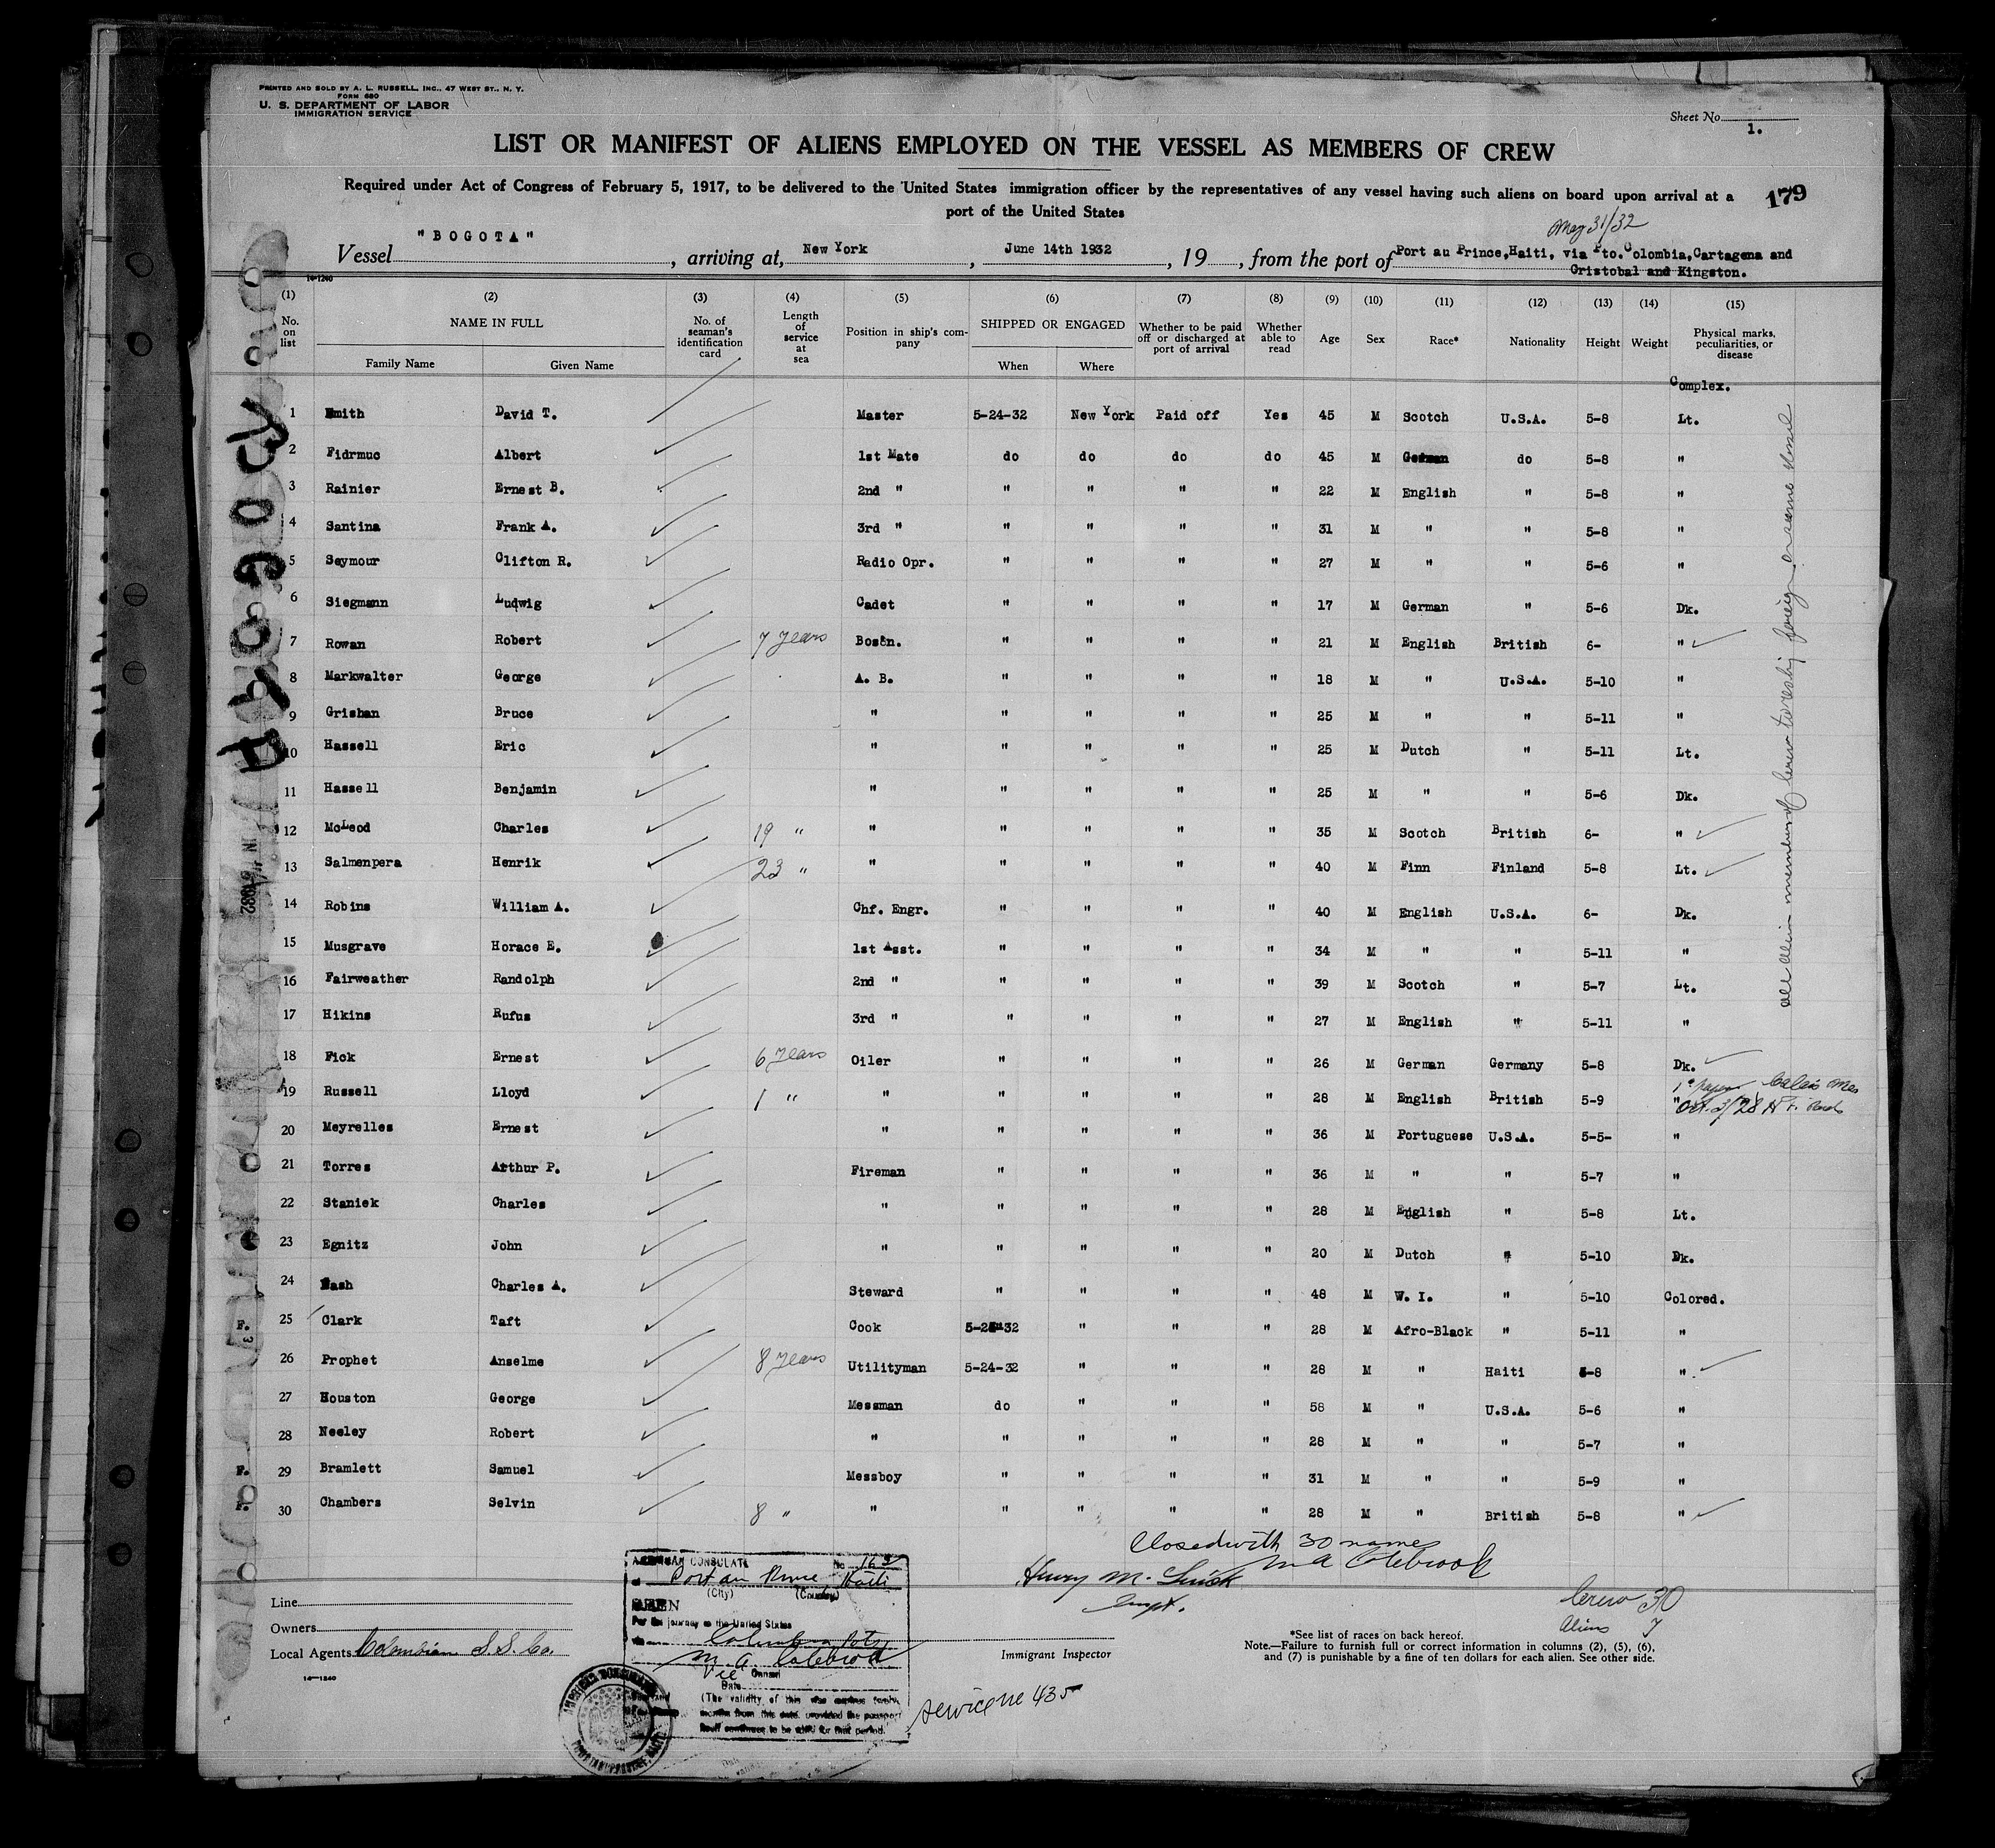 PRINTED AND SOLD BY A. L. RUSSELL, INC., 47 WEST ST., N. Y.
FORM 680
U. S. DEPARTMENT OF LABOR
IMMIGRATION SERVICE
Sheet No. 1.
LIST OR MANIFEST OF ALIENS EMPLOYED ON THE VESSEL AS MEMBERS OF CREW
Required under Act of Congress of February 5, 1917, to be delivered to the United States immigration officer by the representatives of any vessel having such aliens on board upon arrival at a
port of the United States
179
May 31/32
Vessel "BOGOTA", arriving at, New York, June 14th 1932, 19, from the port of Port au Prince, Haiti, via Pto. Colombia, Cartagena and
Cristobal and Kingston.
14-1240
(1) (2) (3) (4) (5) (6) (7) (8) (9) (10) (11) (12) (13) (14) (15)
No. on list NAME IN FULL No. of seaman's identification card Length of service at sea Position in ship's company SHIPPED OR ENGAGED Whether to be paid off or discharged at port of arrival Whether able to read Age Sex Race* Nationality Height Weight Physical marks, peculiarities, or disease
Family Name Given Name When Where
Complex.
1 Smith David T. Master 5-24-32 New York Paid off Yes 45 M Scotch U.S.A. 5-8 Lt.
2 Fidrmuc Albert 1st Mate do do do do 45 M German do 5-8 "
3 Rainier Ernest B. 2nd " " " " " 22 M English " 5-8 "
4 Santina Frank A. 3rd " " " " " 31 M " " 5-8 "
5 Seymour Clifton R. Radio Opr. " " " " 27 M " " 5-6 "
6 Siegmann Ludwig Cadet " " " " 17 M German " 5-6 Dk.
7 Rowan Robert 7 years Bosn. " " " " 21 M English British 6- "
8 Markwalter George A. B. " " " " 18 M " U.S.A. 5-10 "
9 Grishan Bruce " " " " " 25 M " " 5-11 "
10 Hassell Eric " " " " " 25 M Dutch " 5-11 Lt.
11 Hassell Benjamin " " " " " 25 M " " 5-6 Dk.
12 McLeod Charles 19 " " " " " " 35 M Scotch British 6- "
13 Salmenpera Henrik 23 " " " " " " 40 M Finn Finland 5-8 Lt.
14 Robins William A. Chf. Engr. " " " " 40 M English U.S.A. 6- Dk.
15 Musgrave Horace E. 1st Asst. " " " " 34 M " " 5-11 "
16 Fairweather Randolph 2nd " " " " " 39 M Scotch " 5-7 Lt.
17 Hikins Rufus 3rd " " " " " 27 M English " 5-11 "
18 Fick Ernest 6 years Oiler " " " " 26 M German Germany 5-8 Dk.
1" paper Calais Me
19 Russell Lloyd 1 " " " " " " 28 M English British 5-9 " Oct. 3/28
20 Meyrelles Ernest " " " " " 36 M Portuguese U.S.A. 5-5- "
21 Torres Arthur P. Fireman " " " " 36 M " " 5-7 "
22 Staniek Charles " " " " " 28 M English " 5-8 Lt.
23 Egnitz John " " " " " 20 M Dutch " 5-10 Dk.
24 Nash Charles A. Steward " " " " 48 M W. I. " 5-10 Colored.
F. 25 Clark Taft Cook 5-25-32 " " " 28 M Afro-Black " 5-11 "
26 Prophet Anselme 8 years Utilityman 5-24-32 " " " 28 M " Haiti 5-8 "
27 Houston George Messman do " " " 58 M " U.S.A. 5-6 "
28 Neeley Robert " " " " " 28 M " " 5-7 "
F. 29 Bramlett Samuel Messboy " " " " 31 M " " 5-9 "
F. 30 Chambers Selvin 8 " " " " " " 28 M " British 5-8 "
BOGOTA
all alien members of crew to reship foreign on same vessel
Closed with 30 names
M A Colebrook
Henry M.
Inspt.
AMERICAN CONSULATE No. 163
at Port au Prince Haiti
(City) (Country)
SEEN
For the journey to the United States
M. A. Colebrook
Vice Consul
Date
(The validity of this visa expires twelve
months from this date, provided the passport
itself continues to be valid for that period.
Service No 435
Line
Owners
Local Agents Colombian S.S. Co.
14-1240
Immigrant Inspector
Crew 30
Aliens 7
*See list of races on back hereof.
Note.—Failure to furnish full or correct information in columns (2), (5), (6),
and (7) is punishable by a fine of ten dollars for each alien. See other side.